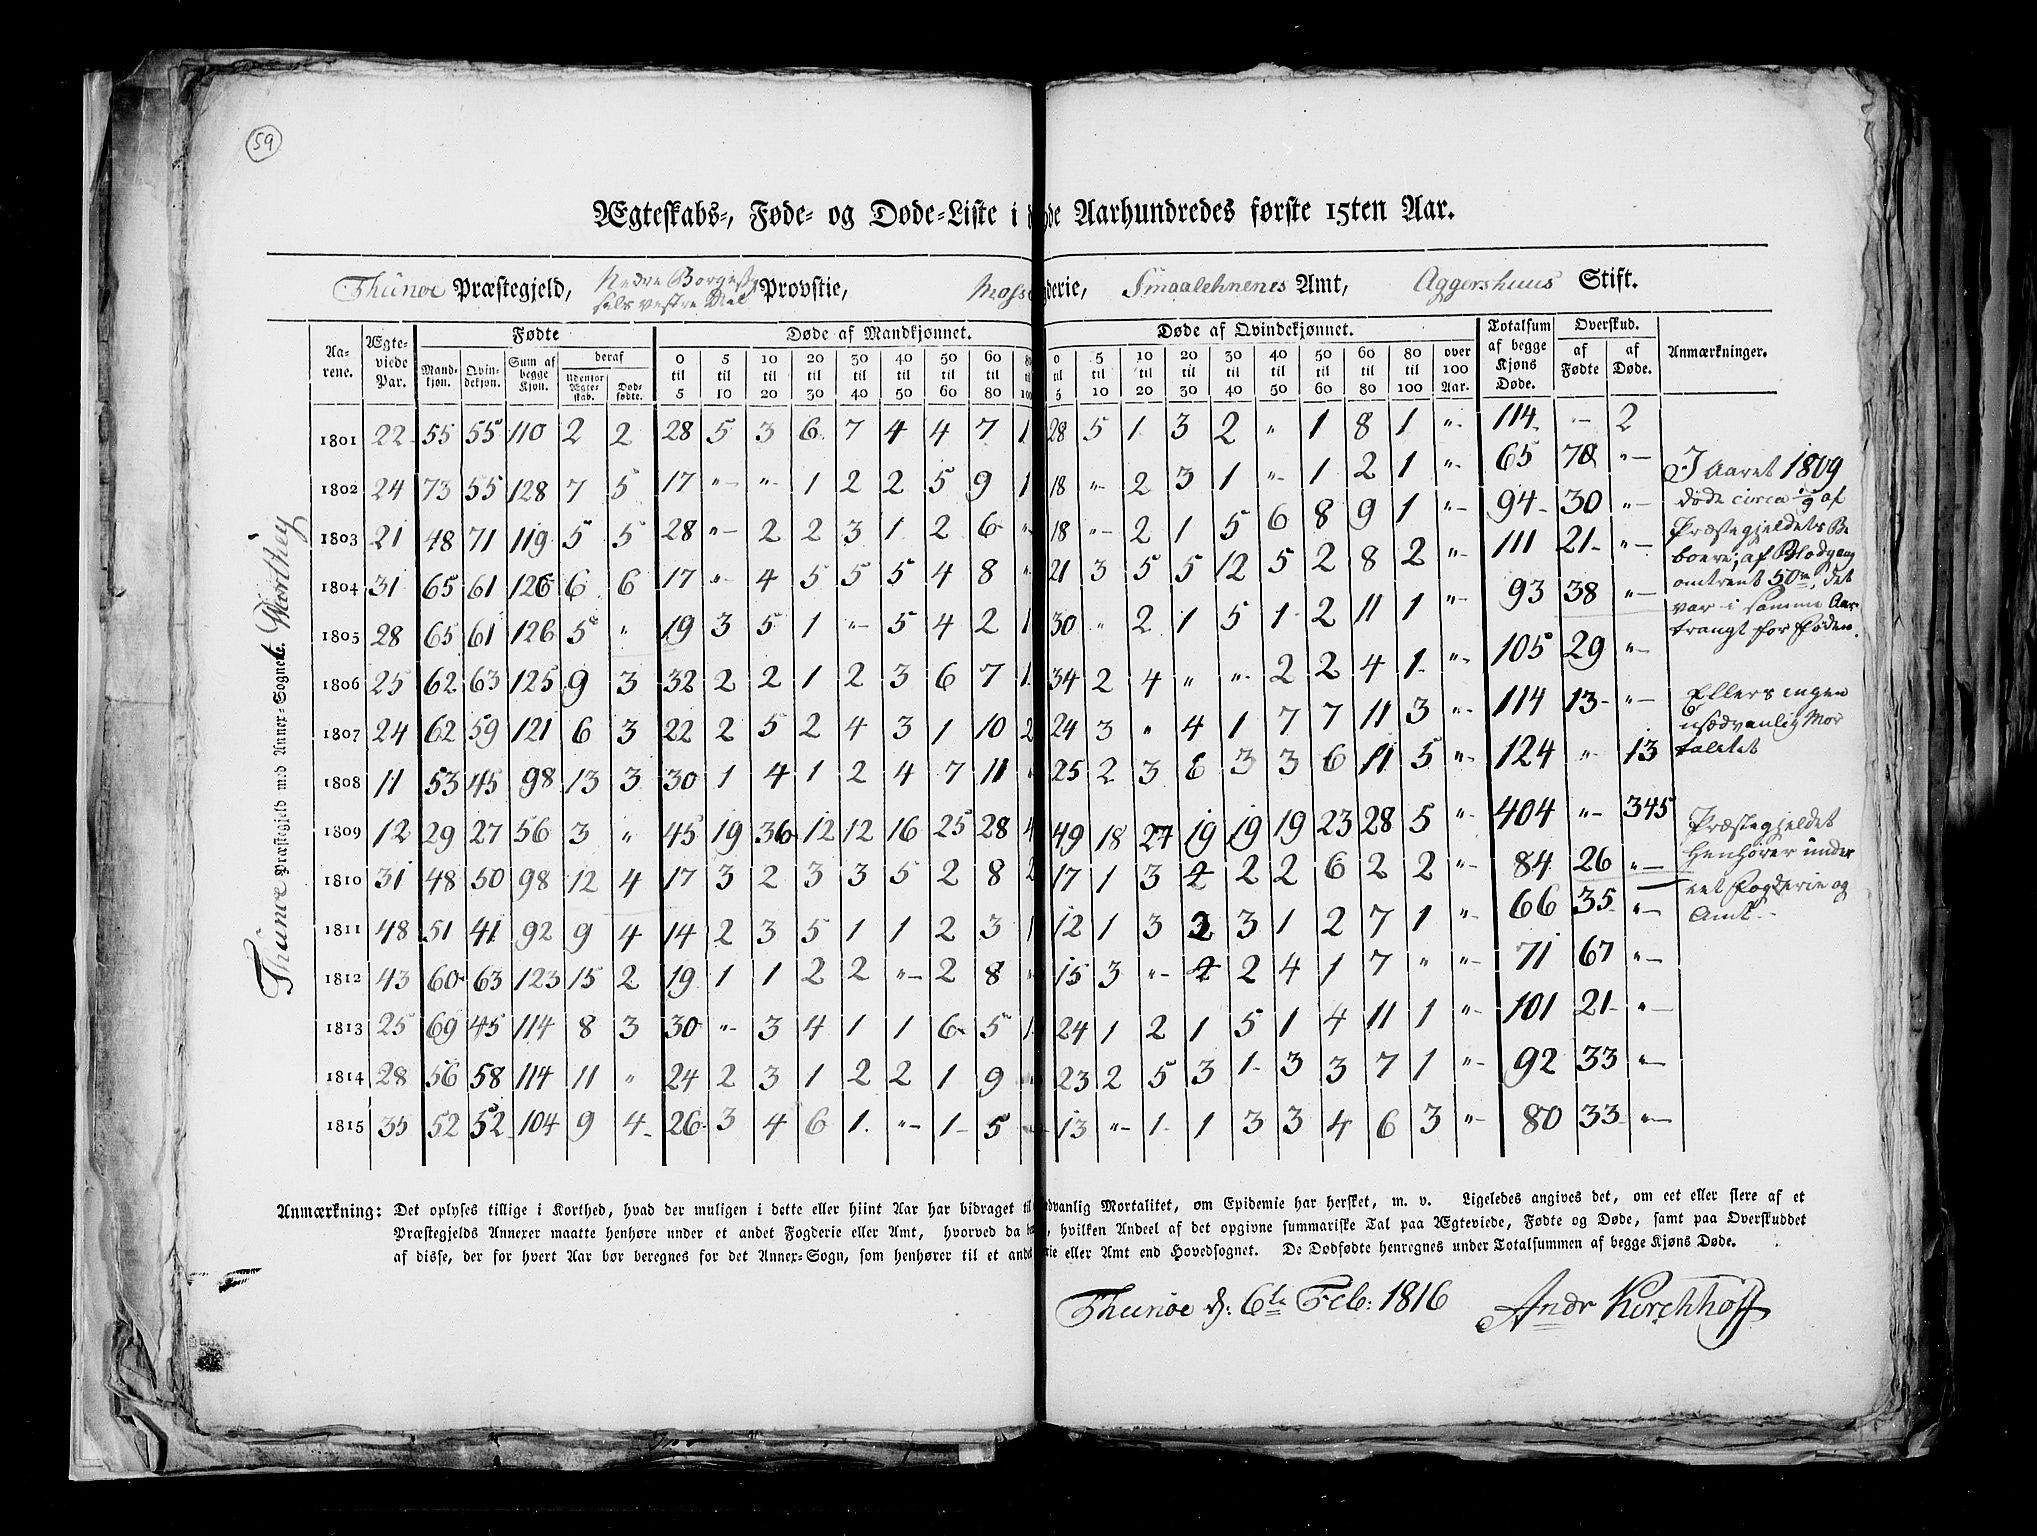 59
Ægteskabs-, Føde- og Døde-Liste i de Aarhundredes første 15ten Aar.
Thunøe Præstegjeld, Nedre Borgesÿ sels vestre Deel Provstie, Moss derie, Smaalehnenes Amt, Aggershuus Stift.
Aarene. Ægteviede Par. Fødte Døde af Mandkjønnet. Døde af Qvindekjønnet. Totalsum af begge Kjøns Døde. Overskud. Anmærkninger.
Mandkjøn. Qvindekjøn. Sum af begge Kjøn. deraf Udenfor Ægteskab. Dødfødte. 0 til 5 5 til 10 10 til 20 20 til 30 30 til 40 40 til 50 50 til 60 60 til 80 80 til 100 0 til 5 5 til 10 10 til 20 20 til 30 30 til 40 40 til 50 50 til 60 60 til 80 80 til 100 over 100 Aar. af Fødte af Døde.
Thunøe Præstegjeld med Annex-Sognene.
1801 22 55 55 110 2 2 28 5 3 6 7 4 4 7 1 28 5 1 3 2 " 1 8 1 " 114 " 2
1802 24 73 55 128 7 5 17 " " 1 2 2 5 9 1 18 " 2 3 1 " 1 2 1 " 65 70 "
1803 21 48 71 119 5 5 28 " 2 2 3 1 2 6 " 18 " 2 1 5 6 8 9 1 " 94 30 "
1804 31 65 61 126 6 6 17 " 4 5 5 5 4 8 " 21 3 5 5 12 5 2 8 2 " 111 21 "
1805 28 65 61 126 5 " 19 3 5 1 " 5 4 2 1 30 " 2 1 5 1 2 11 1 " 93 38 "
1806 25 62 63 125 9 3 32 2 2 1 2 3 6 7 1 34 2 4 " " 2 2 4 1 " 105 29 "
1807 24 62 59 121 6 3 22 2 5 2 4 3 1 10 2 24 3 " 4 1 7 7 11 3 " 114 13 "
1808 11 53 45 98 13 3 30 1 4 1 2 4 7 11 " 25 2 3 6 3 3 6 11 5 " 124 " 13
1809 12 29 27 56 3 " 45 19 36 12 12 16 25 28 4 49 18 27 19 19 19 23 28 5 " 404 " 345
1810 31 48 50 98 12 4 17 3 2 3 3 5 2 8 2 17 1 3 2 2 2 6 2 2 " 84 26 "
1811 48 51 41 92 9 4 14 2 3 5 1 1 2 3 1 12 1 3 3 3 1 2 7 1 " 66 35 "
1812 43 60 63 123 15 2 19 1 1 2 2 " 2 8 " 15 3 " 2 2 4 1 7 " " 71 67 "
1813 25 69 45 114 8 3 30 " 3 4 1 1 6 5 1 24 1 2 1 5 1 4 11 1 " 101 21 "
1814 28 56 58 114 11 " 24 2 3 1 2 2 1 9 23 2 5 3 1 3 3 7 1 " 92 33 "
1815 35 52 52 104 9 4 26 3 4 6 1 " 1 5 13 " 1 1 3 3 4 6 3 " 80 33 "
I Aaret 1809
døde circa 1/9 af
Præstegjeldets Be
boere; af Blodgang
omtrent 50 det
var i samme Aar
trangt for Føden.
Ellers ingen
usædvanlig Mor
talitet
Præstegjeldet
Henhører under
eet Fogderie og
Amt.
Anmærkning: Det oplyses tillige i Korthed, hvad der muligen i dette eller hiint Aar har bidraget til dvanlig Mortalitet, om Epidemie har hersket, m. v. Ligeledes angives det, om eet eller flere af et
Præstegjelds Annexer maatte henhøre under et andet Fogderie eller Amt, hvorved da , hvilken Andeel af det opgivne summariske Tal paa Ægteviede, Fødte og Døde, samt paa Overskuddet
af disse, der for hvert Aar bør beregnes for det Annex-Sogn, som henhører til et and rie eller Amt end Hovedsognet. De Dødfødte henregnes under Totalsummen af begge Kjøns Døde.
Thunøe d: 6te Feb: 1816 Andr Kirchhoff